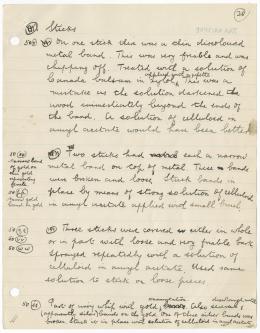 Sticks
On one stick there was a thin discoloured
metal band. This was very friable and was
chipping off. Treated with a solution of
Canada balsam in Xylol, This was a
mistake as the solution darkened the
wood immediately beyond the ends of
the band. A solution of celluloid in
amyl acetate would have been better
Two sticks had each a narrow
metal band on top of metal. These bands
were broken and loose. Stuck bands in
place by means of strong solution of celluloid
in amyl acetate applied with small brush.
narrow band
of gold on
Three sticks was covered either in whole
or in part with loose and very friable bark
Sprayed repeatedly with a solution of
celluloid in amyl acetate. Used same
solution to stick on loose pieces
Part of ivory whip with gold
bands of gold
broken Stuck in place with solution of celluloid in amyl acetate